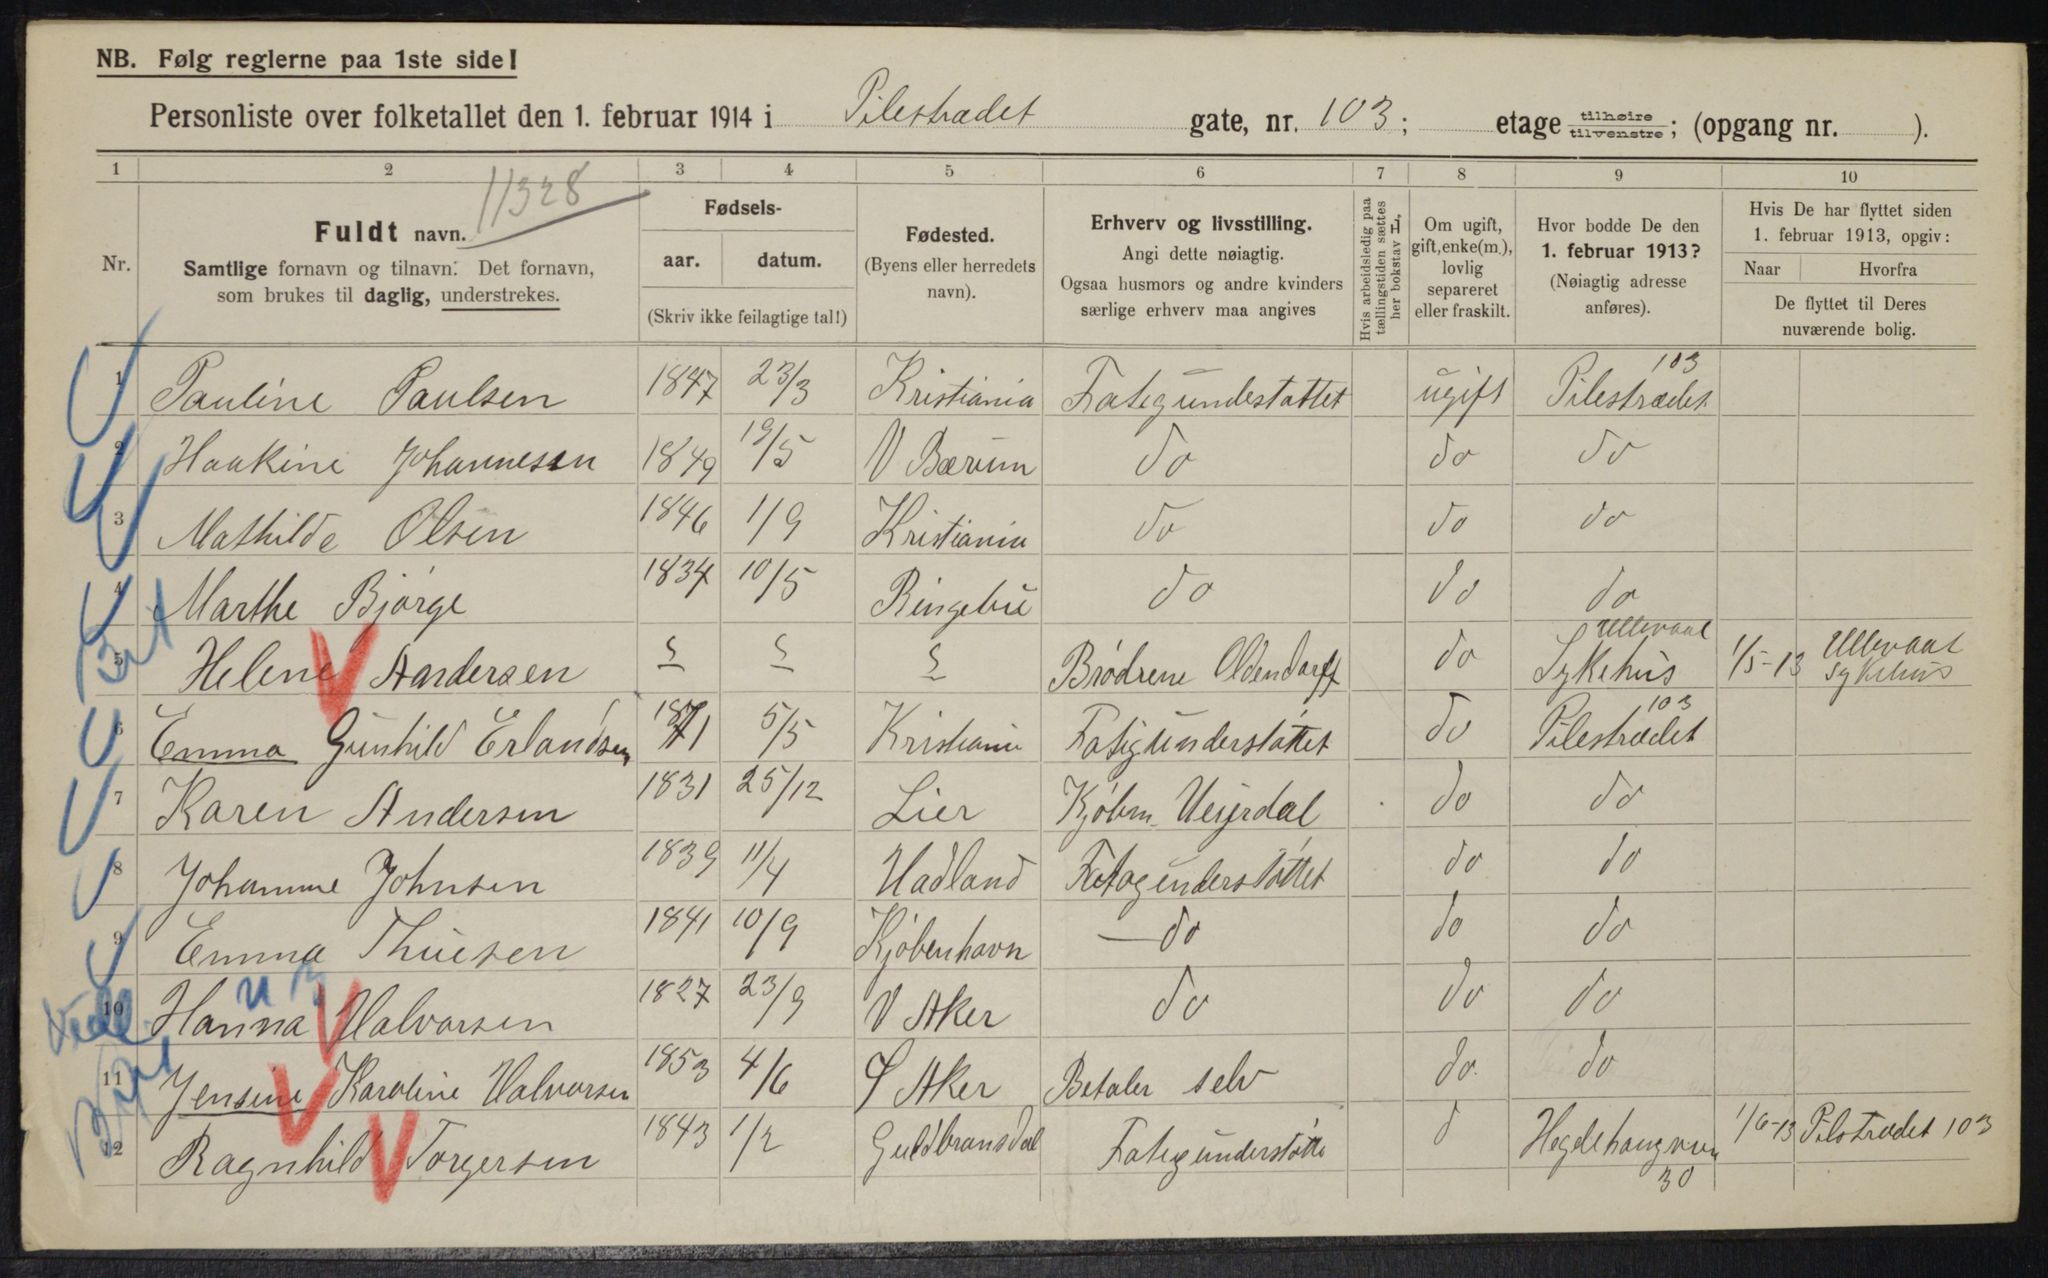 NB. Følg reglerne paa 1ste side!
Personliste over folketallet den 1. februar 1914 i Pilestrædet gate, nr. 103; etage tilhøire tilvenstre; (opgang nr. ).
1 2 3 4 5 6 7 8 9 10
11328
Nr.
Fuldt navn.
Samtlige fornavn og tilnavn. Det fornavn,
som brukes til daglig, understrekes.
Fødsels-
aar. datum.
(Skriv ikke feilagtige tal!)
Fødested.
(Byens eller herredets
navn).
Erhverv og livsstilling.
Angi dette nøiagtig.
Ogsaa husmors og andre kvinders
særlige erhverv maa angives
Hvis arbeidsledig paa
tællingstiden sættes
her bokstav L,
Om ugift,
gift, enke(m.),
lovlig
separeret
eller fraskilt.
Hvor bodde De den
1. februar 1913?
(Nøiagtig adresse
anføres).
Hvis De har flyttet siden
1. februar 1913, opgiv:
Naar Hvorfra
De flyttet til Deres
nuværende bolig.
1 Pauline Paulsen 1847 23/3 Kristiania Fatigundestøttet ugift Pilestrædet 103
2 Haakine Johannesen 1849 19/5 V Bærum do do do
3 Mathilde Olsen 1846 1/9 Kristiania do do do
4 Marthe Bjørge 1834 10/5 Ringebu do do do
5 Helene Andersen Brødrene Oldendorff do Ullevaal Sykehus 1/5-13 Ullevaal Sykehus
6 Emma Gunhild Erlandsen 1871 5/5 Kristiania Fatigunderstøttet do Pilestrædet 103
7 Karen Andersen 1831 25/12 Lier Kjøbm. do do
8 Johanne Johnsen 1839 11/4 Hadland do do
9 Emma Thuesen 1841 10/9 Kjøbenhavn do do do
10 Hanna Halvorsen 1827 23/9 V Aker do do do
11 Jensine Karoline Halvorsen 1853 4/6 Ø Aker Betaler selv do do
12 Ragnhild Torgersen 1843 1/2 Guldbransdal Fatigunderstøtte d Hegdehaugveien 30 1/6-13 Pilstrædet 103